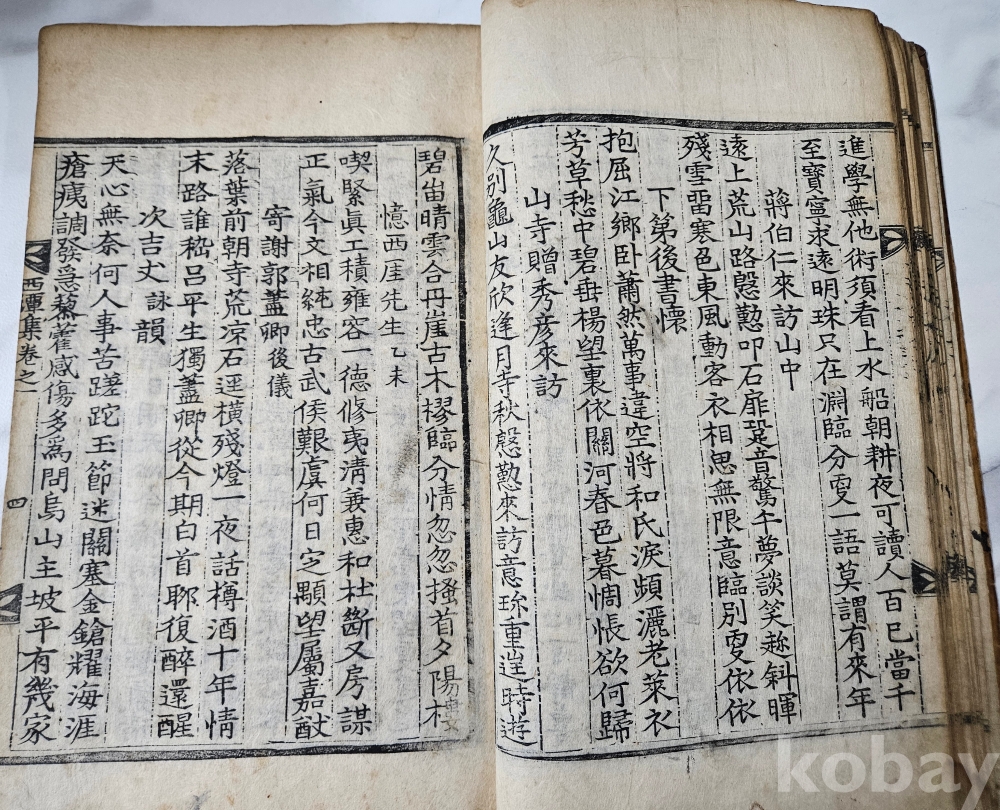 進學無他術須看上水船朝耕夜可讀人百己當千
至寶寧求遠明珠只在淵臨分更一語莫謂有來年
蔣伯仁來訪山中
遠上荒山路慇懃叩石扉跫音驚午夢談笑趂斜暉
殘雪留寒色東風動客衣相思無限意臨別更依依
下第後書懷
抱屈江鄉卧蕭然萬事違空將和氏淚頻灑老萊衣
芳草愁中碧垂楊望裏依關河春色暮惆悵欲何歸
山寺贈秀彦來訪
久別龜山友欣逢月寺秋慇懃來訪意珎重逬時遊
碧峀晴雲合丹崖古木樛臨分情忽忽搔首夕陽樓
憶西厓先生 乙未
喫緊眞工積雍容一德修夷淸兼惠和杜斷又房謀
正氣今文相純忠古武侯艱虞何日㝎顒望屬嘉猷
寄謝郭藎卿 後儀
落葉前朝寺荒凉石逕橫殘燈一夜話樽酒十年情
末路誰嵇呂平生獨藎卿從今期白首聊復醉還醒
次吉丈 詠 韻
天心無奈何人事苦蹉跎玉節迷關塞金鎗耀海涯
瘡痍調發急藜藿感傷多爲問烏山主坡平有幾家
西潭集卷之一
四
kobay